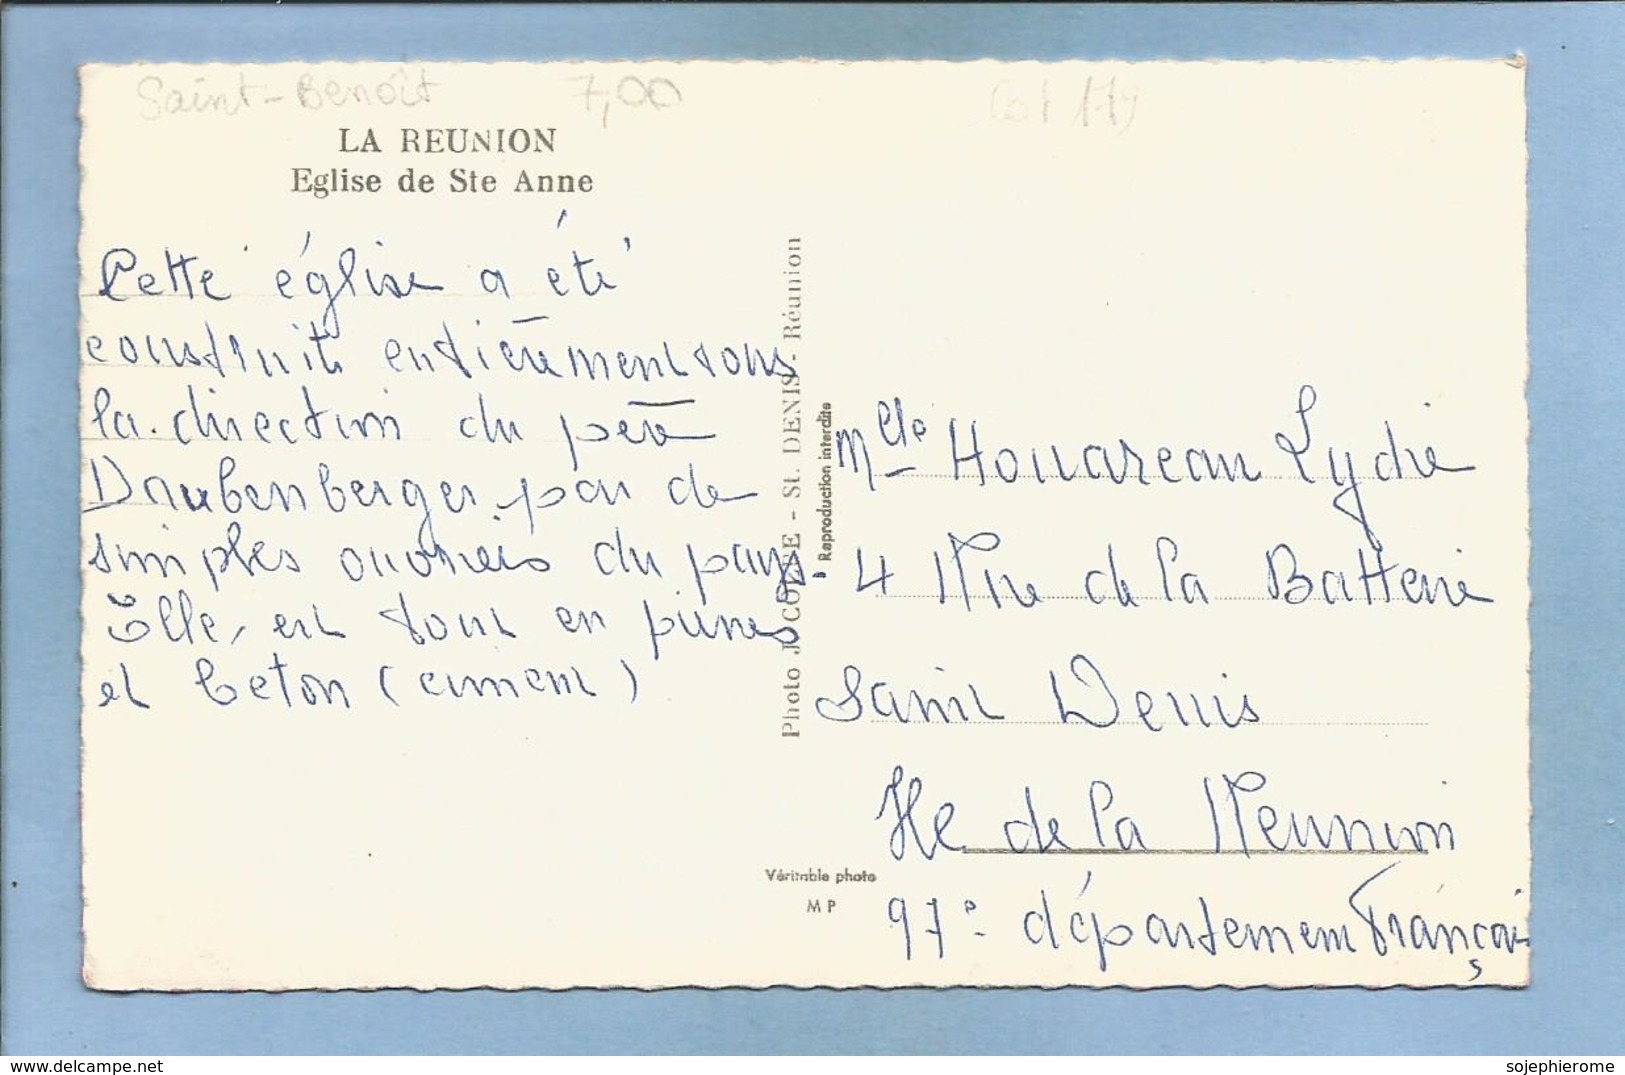 Saint-Benoît 7,00
LA REUNION
Eglise de Ste Anne
Cette église a été
construite entièrement sous
la direction du père
Daubenberger par de
simples ouvriers du pays.
Elle est tout en pierres
et beton (ciment)
St. DENIS - Réunion
Reproduction interdite
Véritable photo
MP
Mlle Houareau Lydie
4 Rue de la Batterie
Saint Denis
Ile de la Reunion
97e département Français
delcampe.net
sojephierome